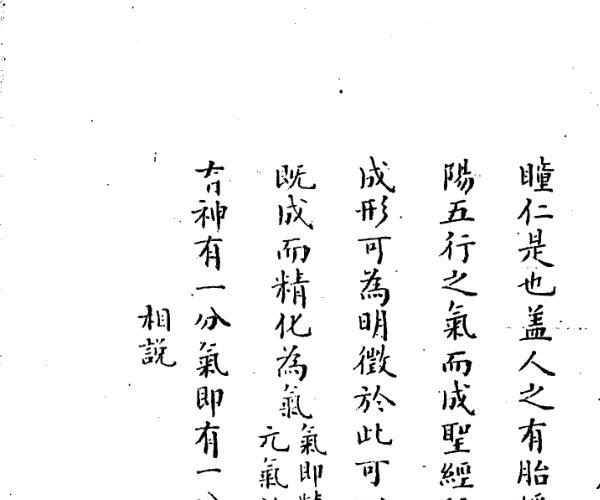 瞳仁是也盖人之有胎
陽五行之氣而成聖經
成形可為明徵於此可
既成而精化為氣
氣即精
元氣
有神有一分氣即有一分
相説